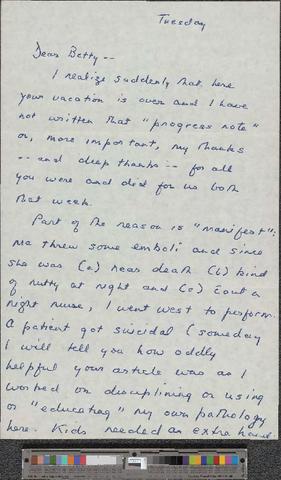 Tuesday
Dear Betty --
I realize suddenly that here
your vacation is over and I have
not written that "progress note"
or, more important, my thanks
-- and deep thanks -- for all
you were and did for us both
that week.
Part of the reason is "manifest":
Ma threw some emboli and since
she was (a) near death (b) kind
of nutty at night and (c) sans a
night nurse, I went west to perform.
A patient got suicidal (someday
I will tell you how oddly
helpful your article was as I
worked on disciplining or using
or "educating" my own pathology
here. Kids needed an extra hand.